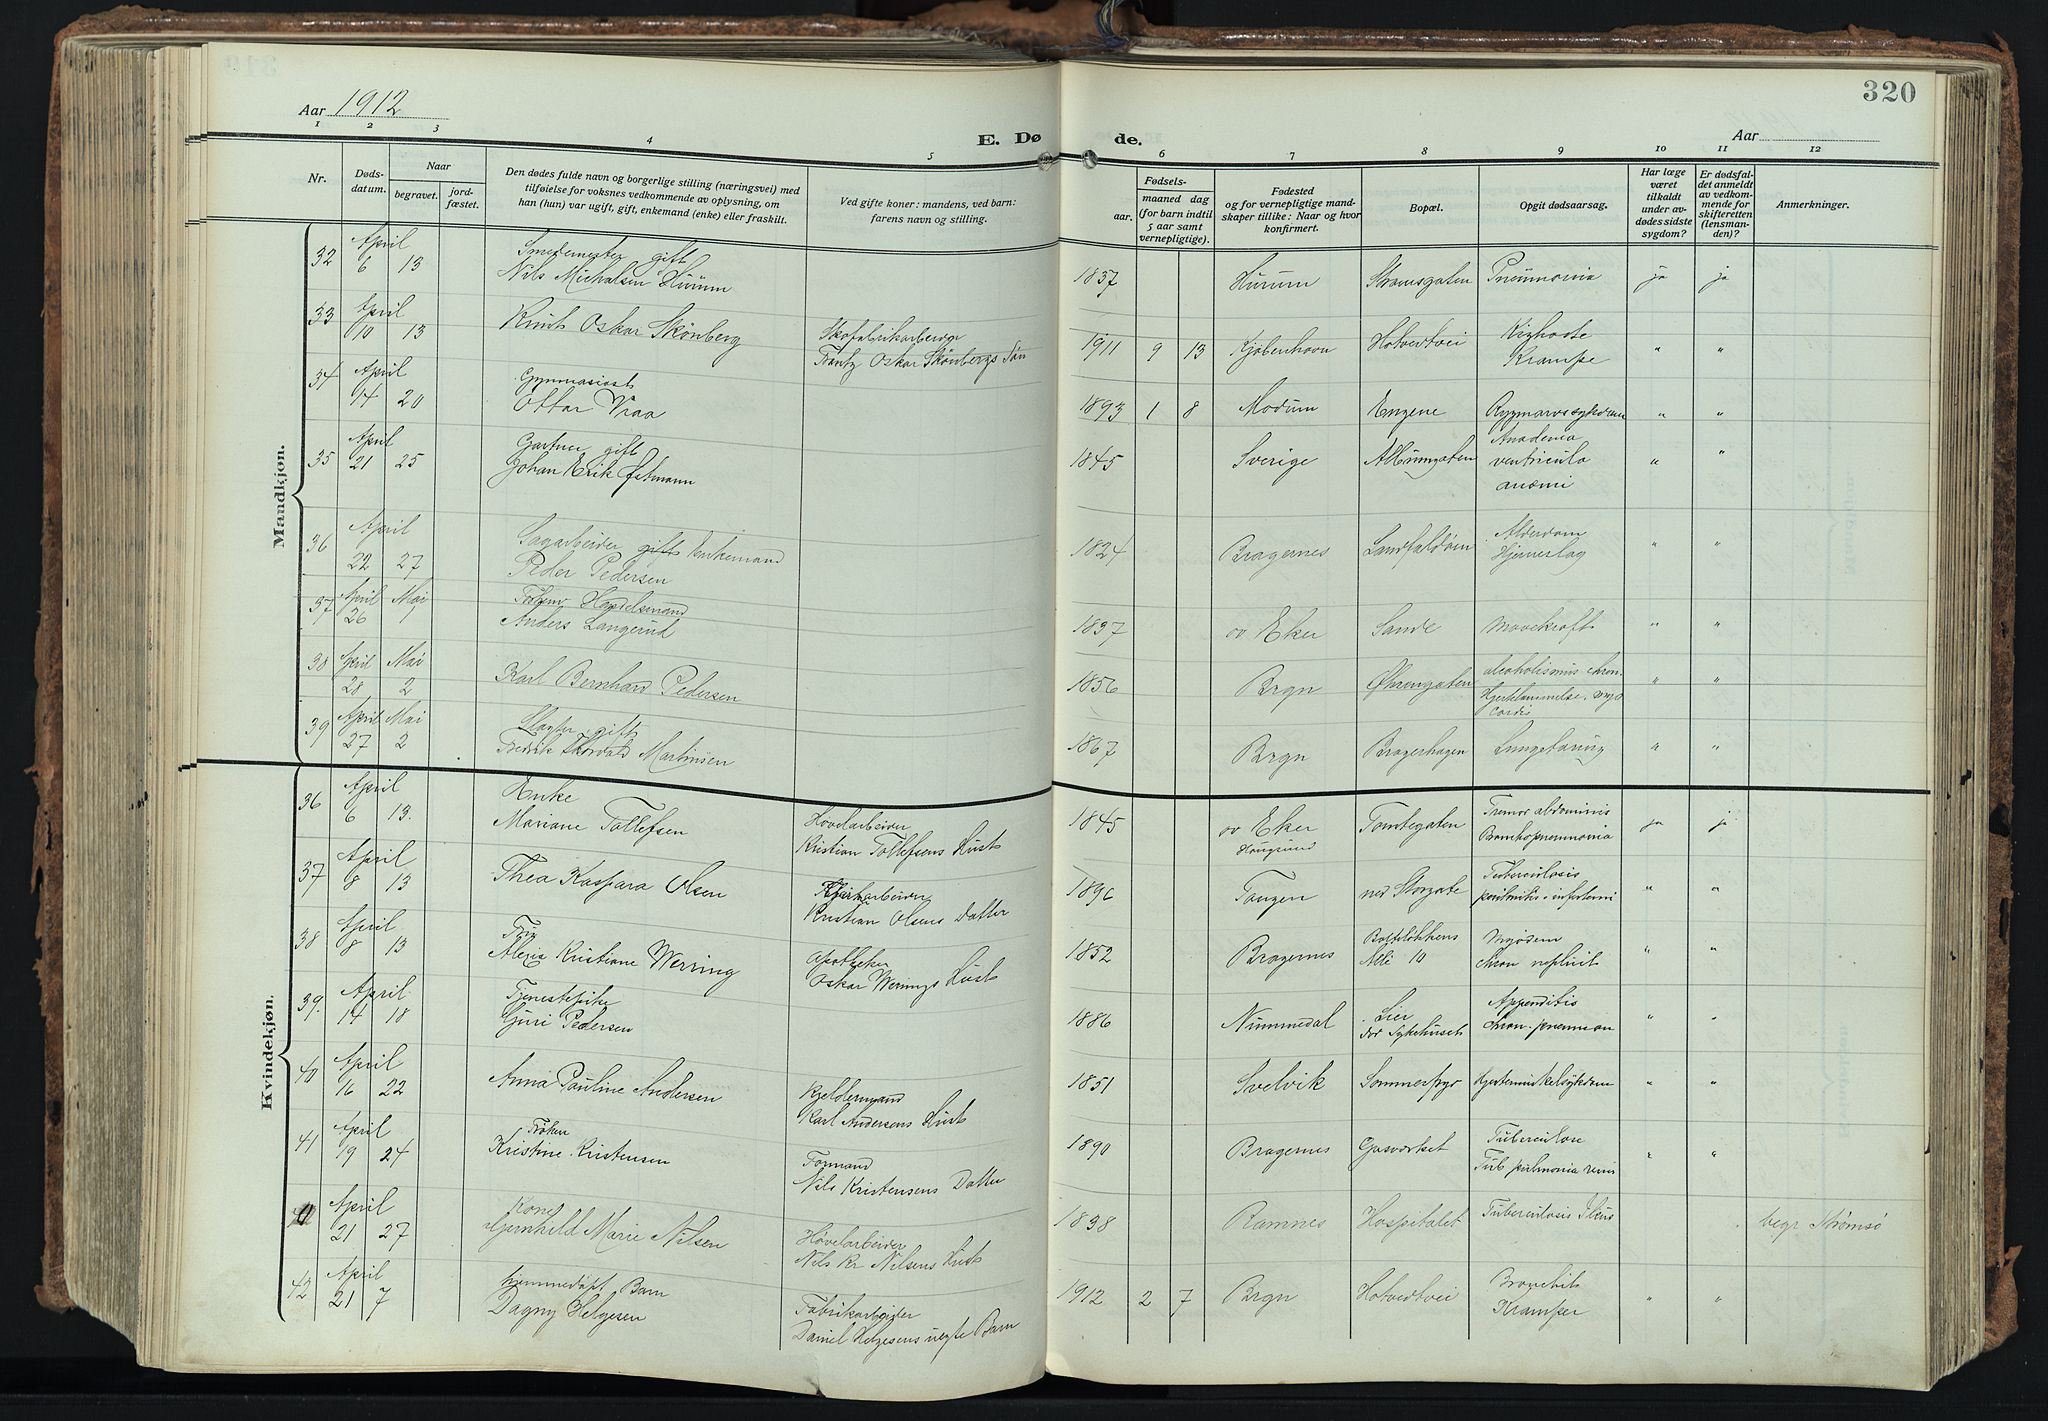 320
Aar 1912
Aar
E. Dø de.
1 2 3 4 5 6 7 8 9 10 11 12
Nr.
Døds-
datum.
Naar
begravet.
jord-
fæstet.
Den dødes fulde navn og borgerlige stilling (næringsvei) med
tilføielse for voksnes vedkommende av oplysning, om
han (hun) var ugift, gift, enkemand (enke) eller fraskilt.
Ved gifte koner: mandens, ved barn:
farens navn og stilling.
Fødsels-
aar. maaned dag
(for barn indtil
5 aar samt
vernepligtige).
Fødested
og for vernepligtige mand-
skaper tillike: Naar og hvor
konfirmert.
Bopæl.
Opgit dødsaarsag.
Har læge
været
tilkaldt
under av-
dødes sidste
sygdom?
Er dødsfal-
det anmeldt
av vedkom-
mende for
skifteretten
(lensman-
den)?
Anmerkninger.
Mandkjøn.
32 April Smedemester gift
6 13 Nils Michalsen Hurum 1837 Hurum Strømsgaten Pneumonia ja ja
33 April Knut Oskar Skönberg Skofabrikarbeider
10 13 Frantz Oskar Skönbergs Søn 1911 9 13 Kjøbenhavn Hotvedtvei Kighoste " "
Krampe
34 April Gymnasiast
14 20 Ottar Vraa 1893 1 8 Modum Engene Rygmarvssykdom " "
35 April Gartner gift
21 25 Johan Erik Østmann 1845 Sverige Albumgaten " "
ventriculo
anæmi
36 April Sagarbeider gift Enkemand
22 27 Peder Pedersen 1824 Bragernes Landfaldøen Alderdom " "
Hjerneslag
37 April Mai Handelsmand
26 1 Anders Langerud 1837 ov Eker Sande Mavekræft " "
38 April Mai
28 2 Karl Bernhard Pedersen 1856 Brgn Øhrengaten alcoholismus chron. " "
Hjertelammelse
cordis
39 April Mai Slagter gift
27 2 Fredrik Thorvald Martinsen 1867 Brgn Bragerhagen " "
Kvindekjøn.
36 April Enke Høvelarbeider
6 13. Mariane Tollefsen Kristian Tollefsens Hust 1845 ov Eker Tomtegaten Tremor abdominis ja ja
Hougsund Bronkopneumonia
37 April
8 13 Thea Kaspara Olsen Kristian Olsens Datter 1896 Tangen ned Storgate Tuberculosis " "
38 April Fru Apotheker
8 13 Alexia Kristiane Werring Oskar Werrings Hust 1852 Bragernes Alle 10 chron nefrit " "
39. April Tjenestepike
14 18 Guri Pedersen 1886 Nummedal Lier Appenditis " "
Sykehuset chron. pneumon
40 April Kjeldermand
16 22 Anna Pauline Andersen Karl Andersens Hust 1851 Svelvik Sommerfrys Hjertemuskelsykdom " "
41 April Frøken Formand
19 24 Kristine Kristensen Nils Kristensens Datter 1890 Bragernes Gasværket Tuberculose " "
Tub pulmonia
April Kone Høvelarbeider
21 27 Gjernhild Marie Nilsen Nils Kr Nilsens Hust 1838 Ramnes Hospitalet Tuberculosis begr Strømsø
42 April hjemmedøpt Barn Fabrikarbeider
21 7 Dagny Helgesen Daniel Helgesens uegte Barn 1912 2 7 Brgn Hotvedtvei Bronchit " "
Kramper